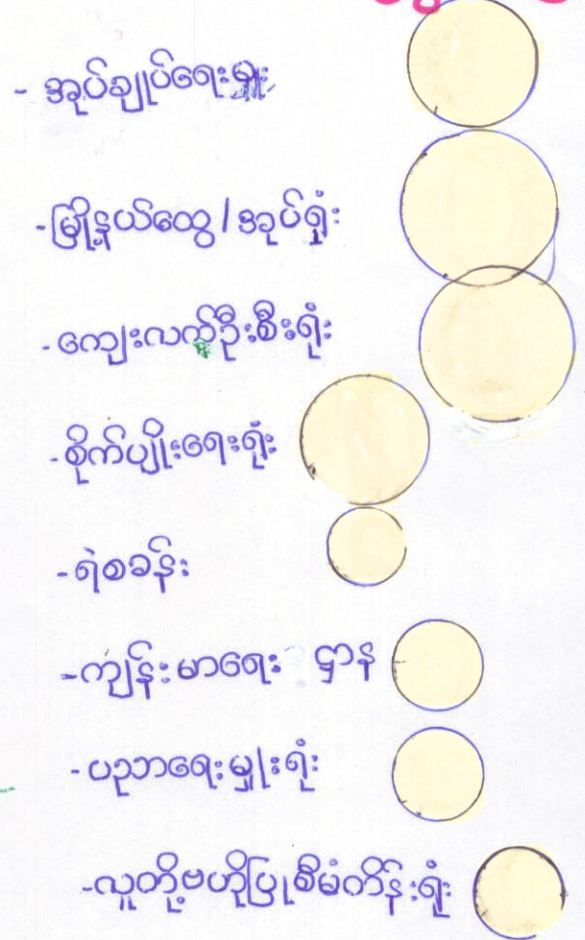 - အုပ်ချုပ်ရေးမှူး
- မြို့နယ်ထွေ/အုပ်ရုံး
- ကျေးလက်ဦးစီးရုံး
- စိုက်ပျိုးရေးရုံး
- ရဲစခန်း
- ကျန်းမာရေး ဌာန
- ပညာရေးမှူးရုံး
- လူတို့ဗဟိုပြုစီမံကိန်းရုံး